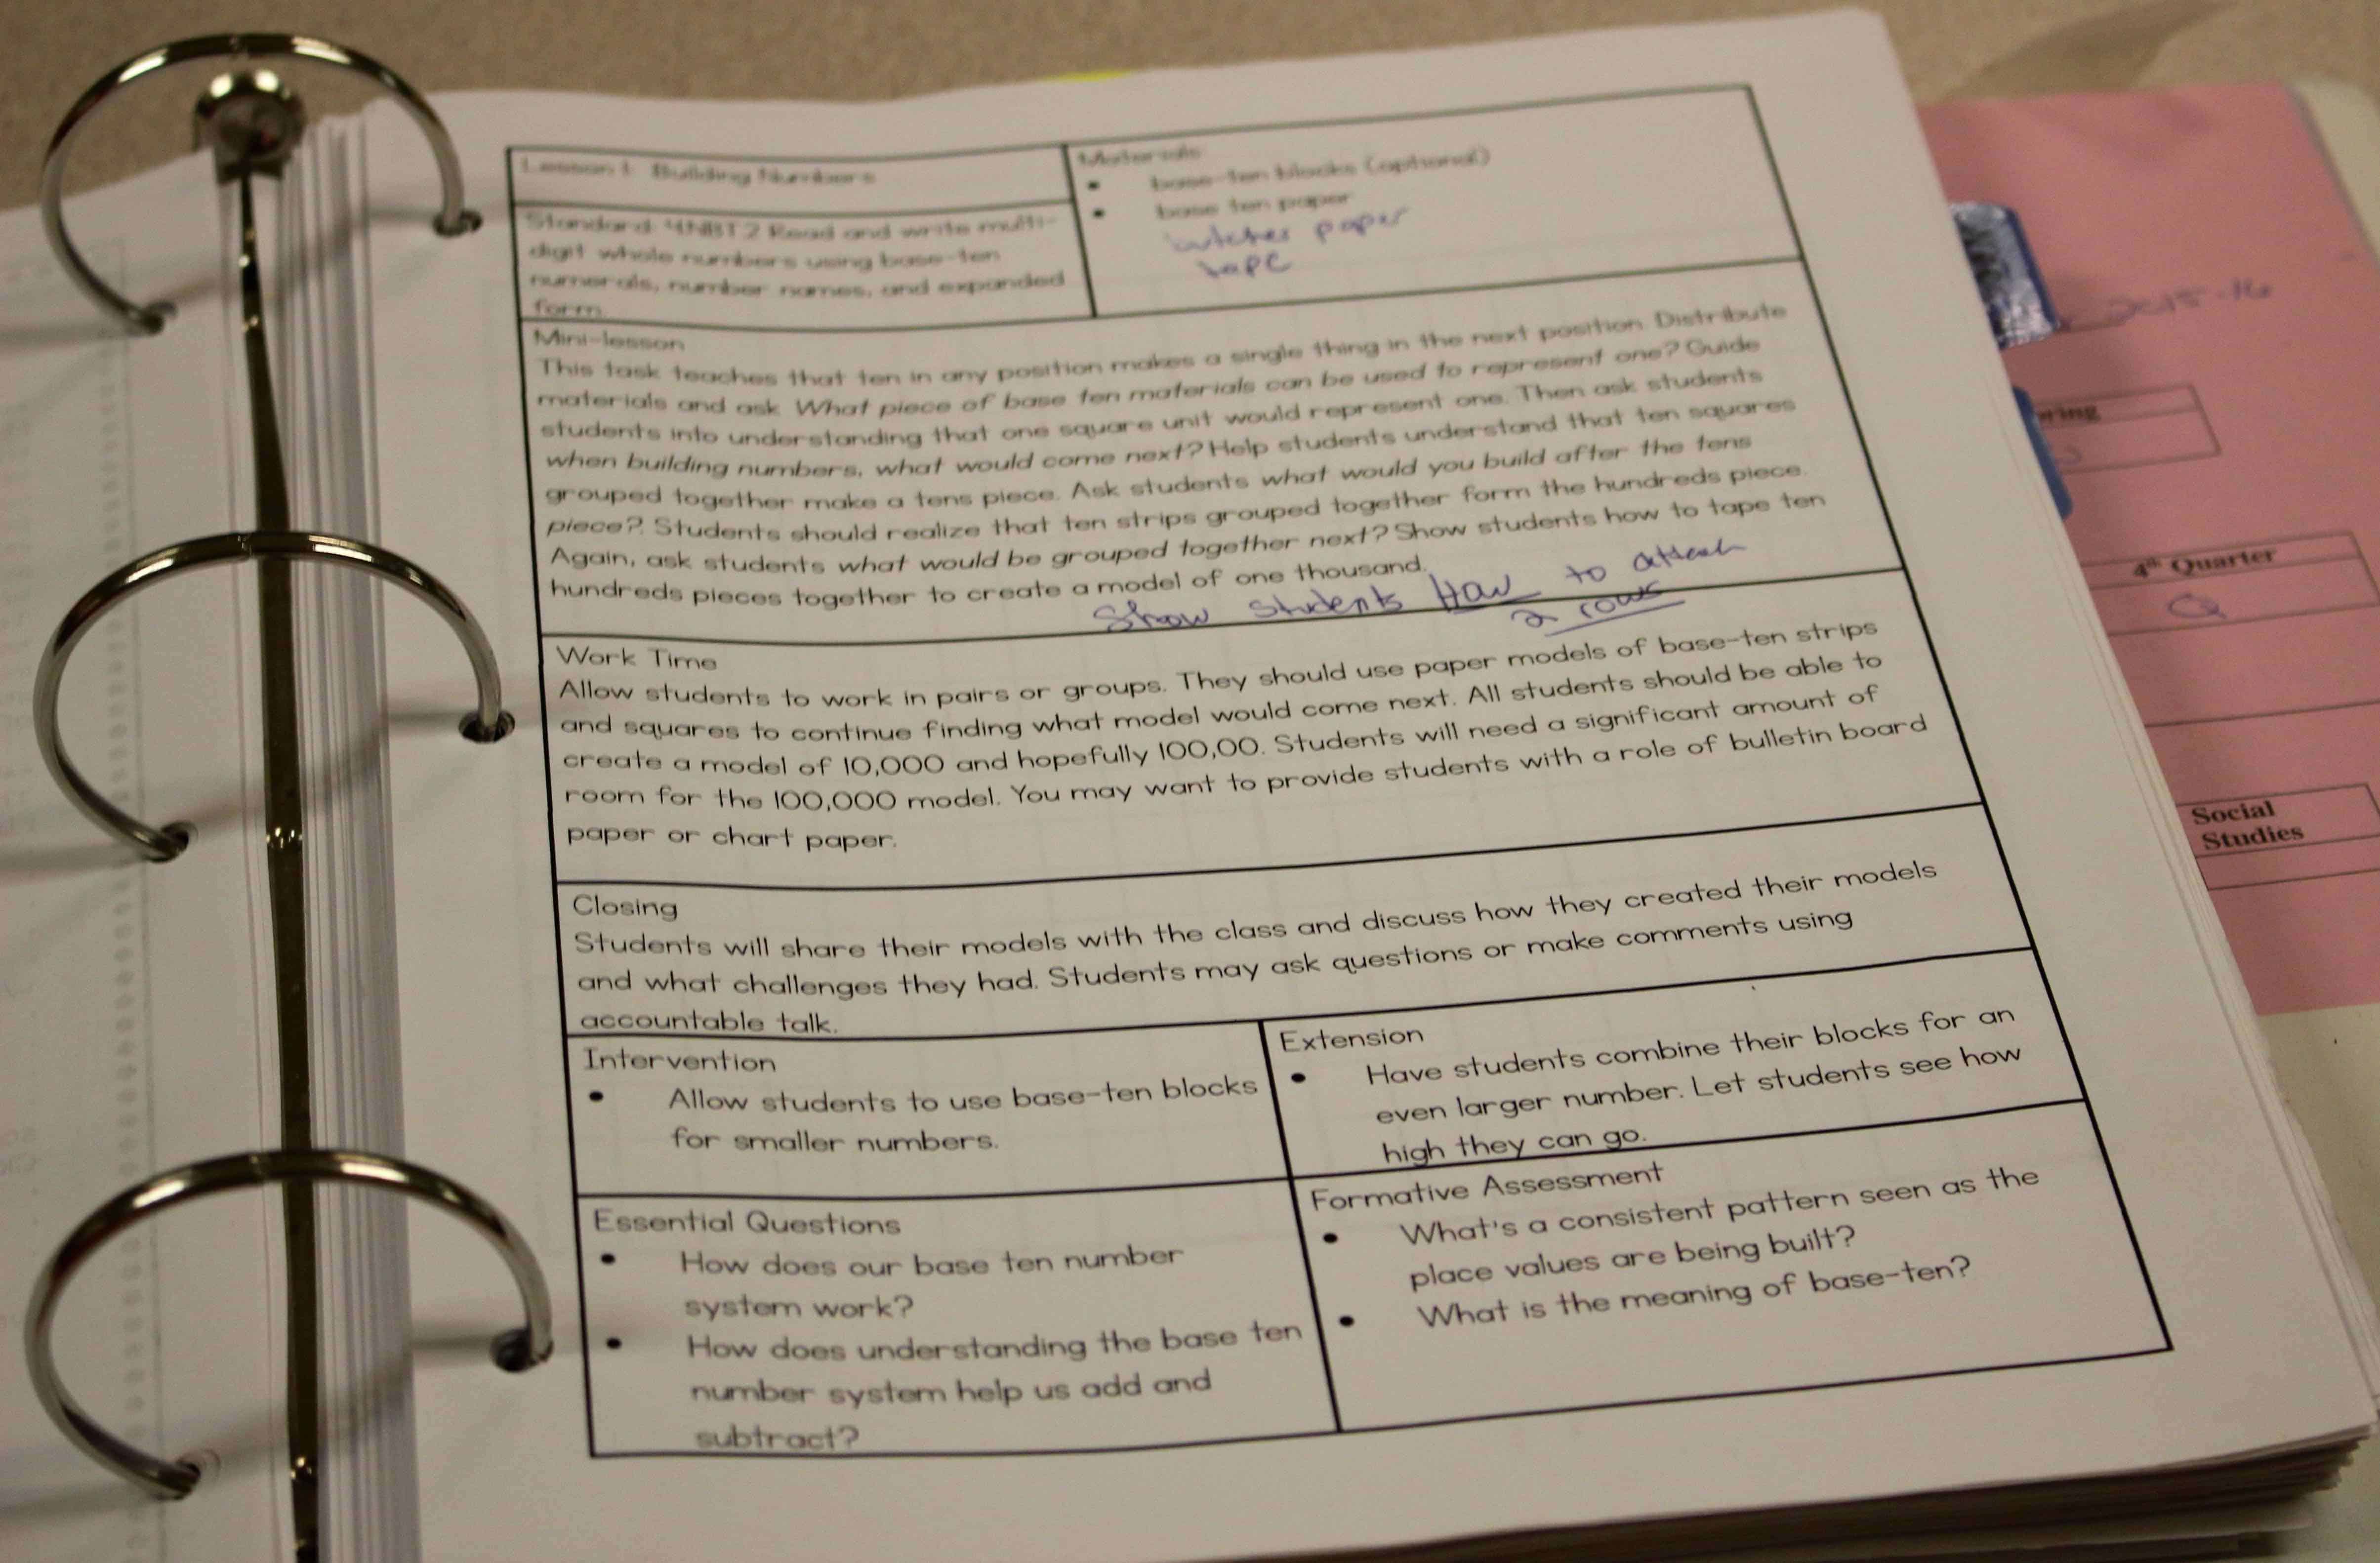 Lesson 1: Building Numbers
Standard: 4NBT.2 Read and write multi-
digit whole numbers using base-ten
numerals, number names, and expanded
form.
Materials:
• base-ten blocks (optional)
• base ten paper
butcher paper
tape
Mini-lesson
This task teaches that ten in any position makes a single thing in the next position. Distribute
materials and ask What piece of base ten materials can be used to represent one? Guide
students into understanding that one square unit would represent one. Then ask students
when building numbers, what would come next? Help students understand that ten squares
grouped together make a tens piece. Ask students what would you build after the tens
piece?. Students should realize that ten strips grouped together form the hundreds piece.
Again, ask students what would be grouped together next? Show students how to tape ten
hundreds pieces together to create a model of one thousand.
Show Students How to attach
2 rows
Work Time
Allow students to work in pairs or groups. They should use paper models of base-ten strips
and squares to continue finding what model would come next. All students should be able to
create a model of 10,000 and hopefully 100,00. Students will need a significant amount of
room for the 100,000 model. You may want to provide students with a role of bulletin board
paper or chart paper.
Closing
Students will share their models with the class and discuss how they created their models
and what challenges they had. Students may ask questions or make comments using
accountable talk.
Intervention
• Allow students to use base-ten blocks
for smaller numbers.
Extension
• Have students combine their blocks for an
even larger number. Let students see how
high they can go.
Essential Questions
• How does our base ten number
system work?
• How does understanding the base ten
number system help us add and
subtract?
Formative Assessment
• What's a consistent pattern seen as the
place values are being built?
• What is the meaning of base-ten?
2015-16
4th Quarter
Social
Studies